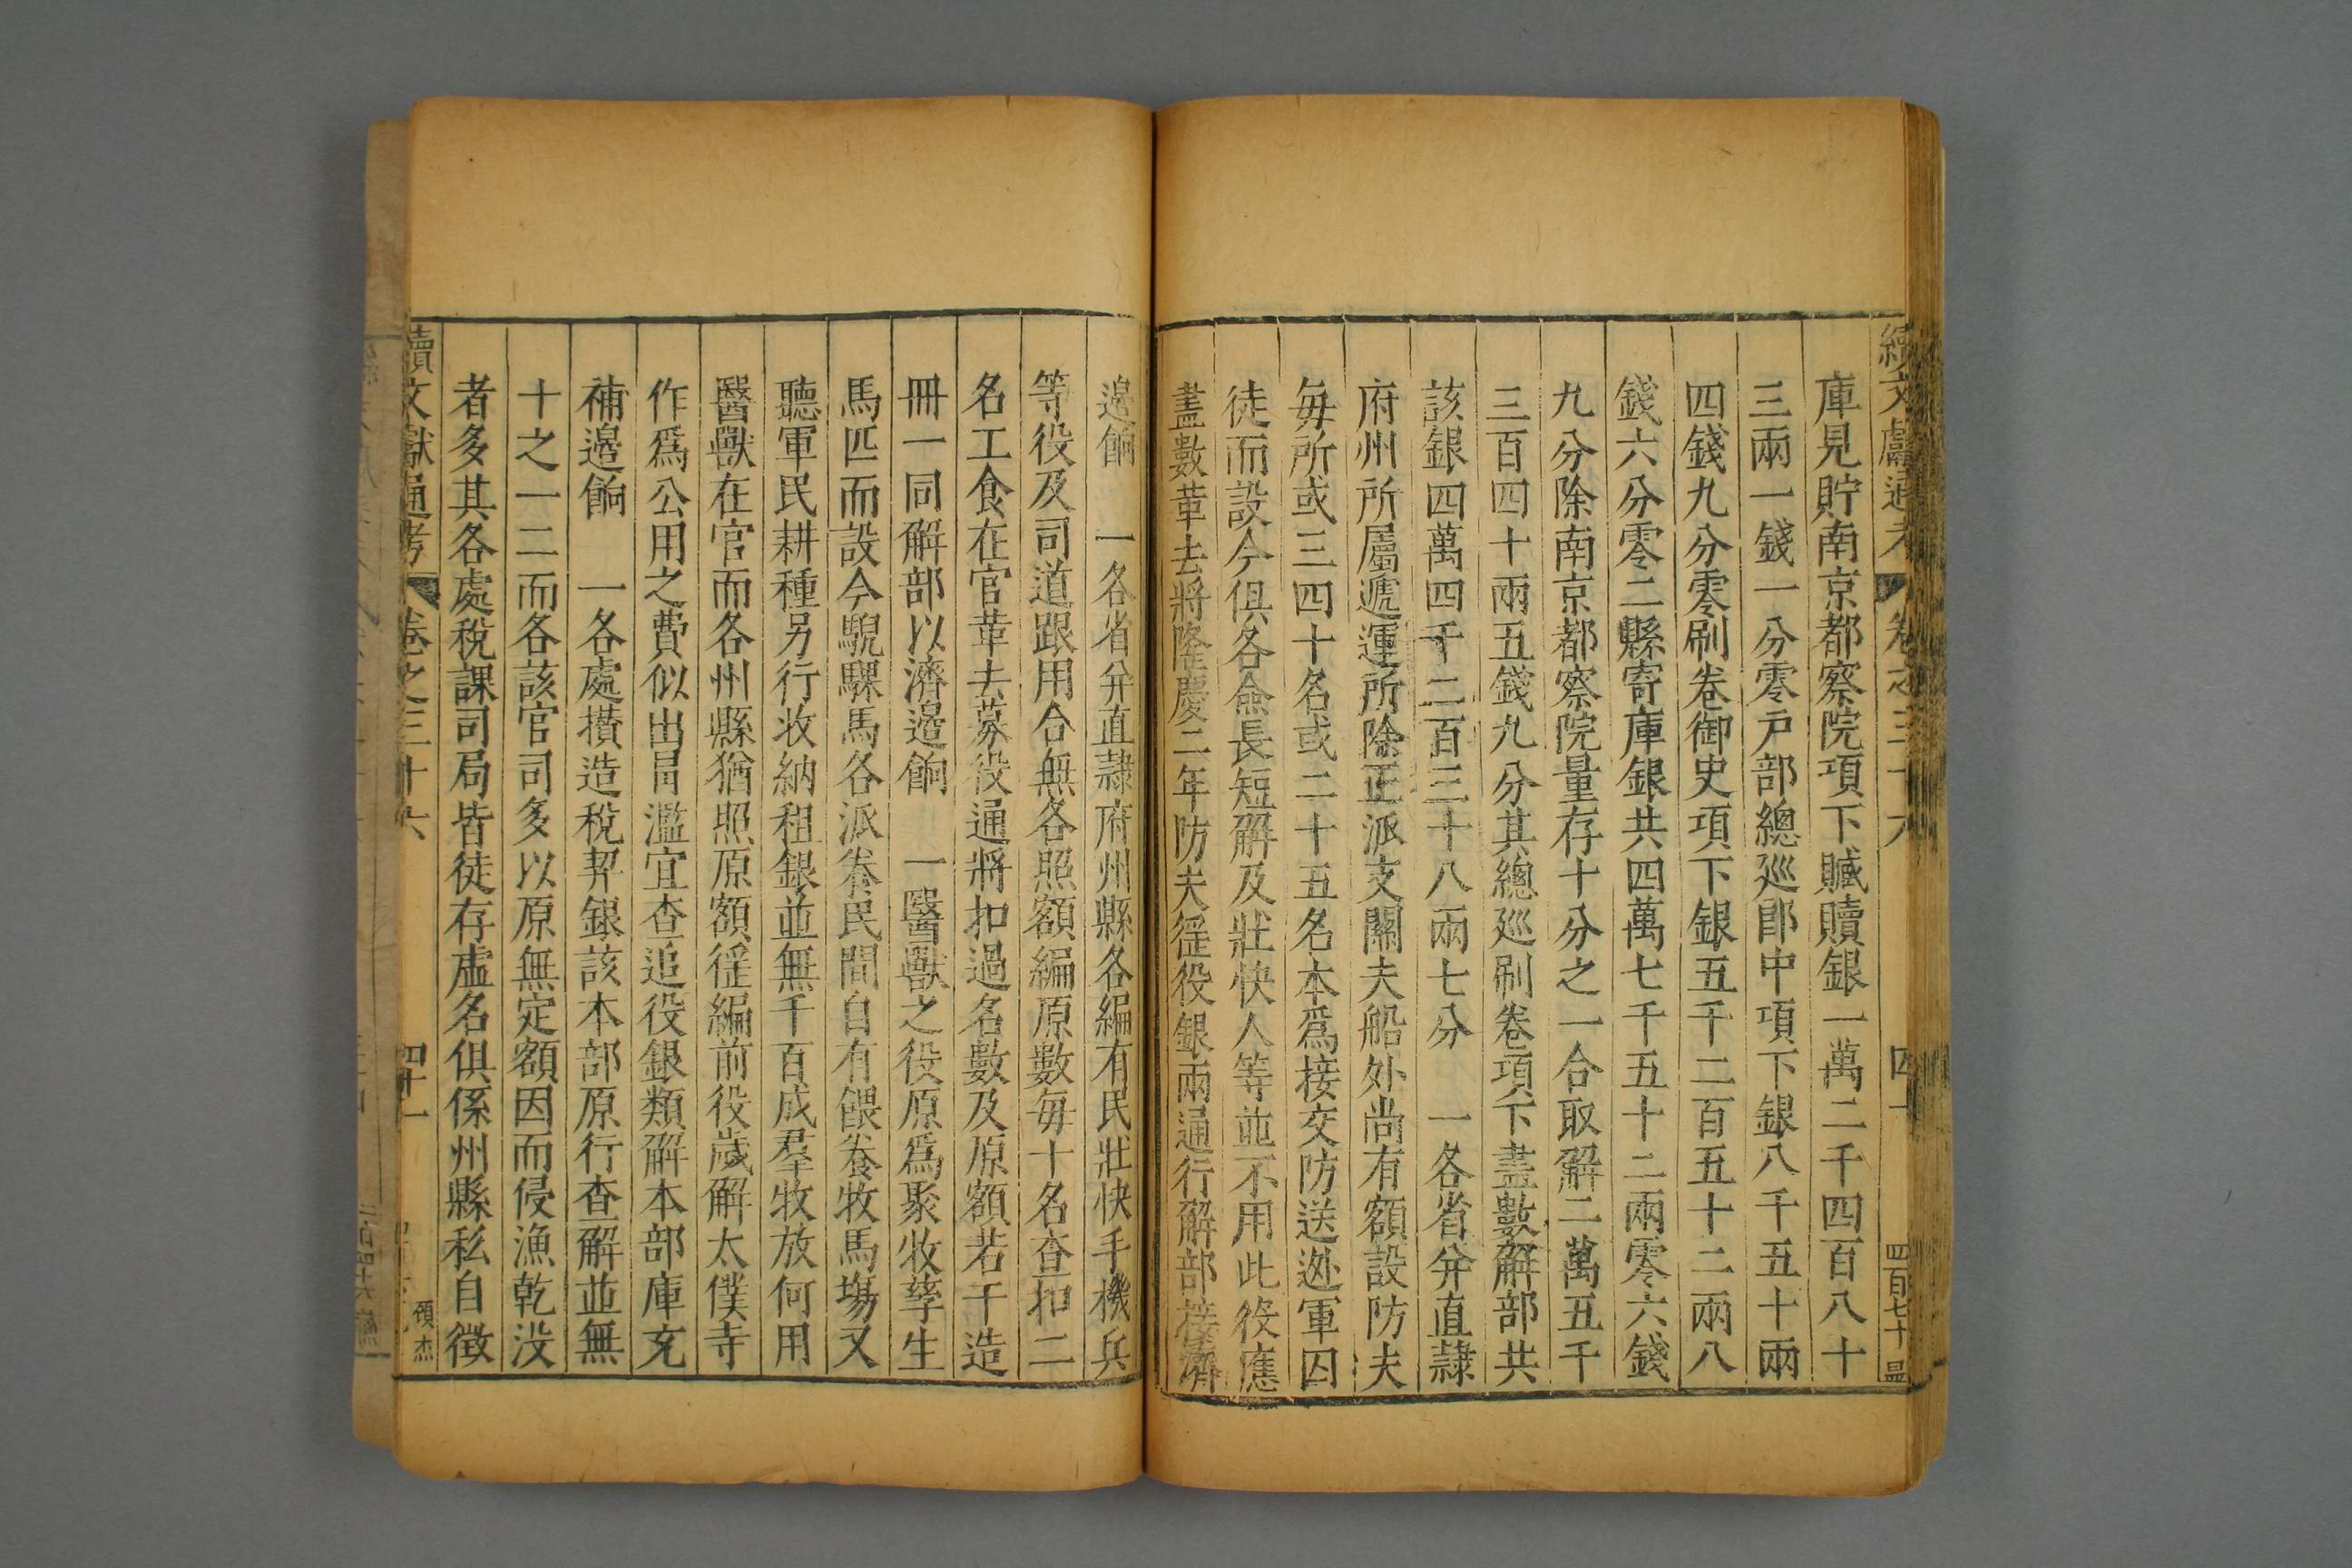 續文獻通考 卷之三十六 四十
庫見貯南京都察院項下贓贖銀一萬二千四百八十
三兩一錢一分零戸部總廵郎中項下銀八千五十兩
四錢九分零刷卷御史項下銀五千二百五十二兩八
錢六分零二縣寄庫銀共四萬七千五十二兩零六錢
九分除南京都察院量存十分之一合取解二萬五千
三百四十兩五錢九分其總廵刷卷項下盡數解部共
該銀四萬四千二百三十八兩七分　一各省并直隷
府州所屬遞運所除正派支關夫船外尚有額設防夫
每所或三四十名或二十五名本爲接交防送廵軍囚
徒而設今俱各僉長短解及壯快人等並不用此役應
盡數革去將隆慶二年防夫徭役銀兩通行解部接濟
邊餉　一各省并直隷府州縣各編有民壯快手機兵
等役及司道跟用合無各照額編原數每十名查扣二
名工食在官革去募役通將扣過名數及原額若干造
冊一同解部以濟邊餉　一醫獸之役原爲聚牧孳生
馬匹而設今騍馬各派養民間自有餵養牧馬塲又
聽軍民耕種另行收納租銀並無千百成羣牧放何用
醫獸在官而各州縣猶照原額徭編前役歲解太僕寺
作爲公用之費似出冐濫宜查追役銀類解本部庫充
補邊餉　一各處攅造稅契銀該本部原行查解並無
十之一二而各該官司多以原無定額因而侵漁乾没
者多其各處稅課司局皆徒存虛名俱係州縣私自徵
續文獻通考 卷之三十六 四十一 顧杰